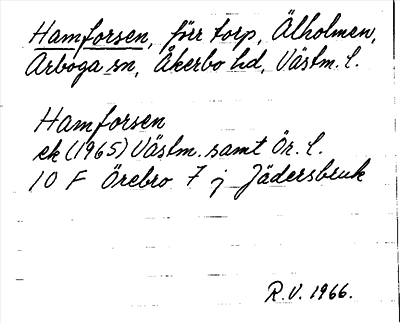 Hamforsen, förr torp, Älholmen,
Arboga sn, Åkerbo hd, Västm. l.
Hamforsen
ek (1965) Västm. samt Ör. l.
10 F Örebro 7 j Jädersbruk
R.V. 1966.